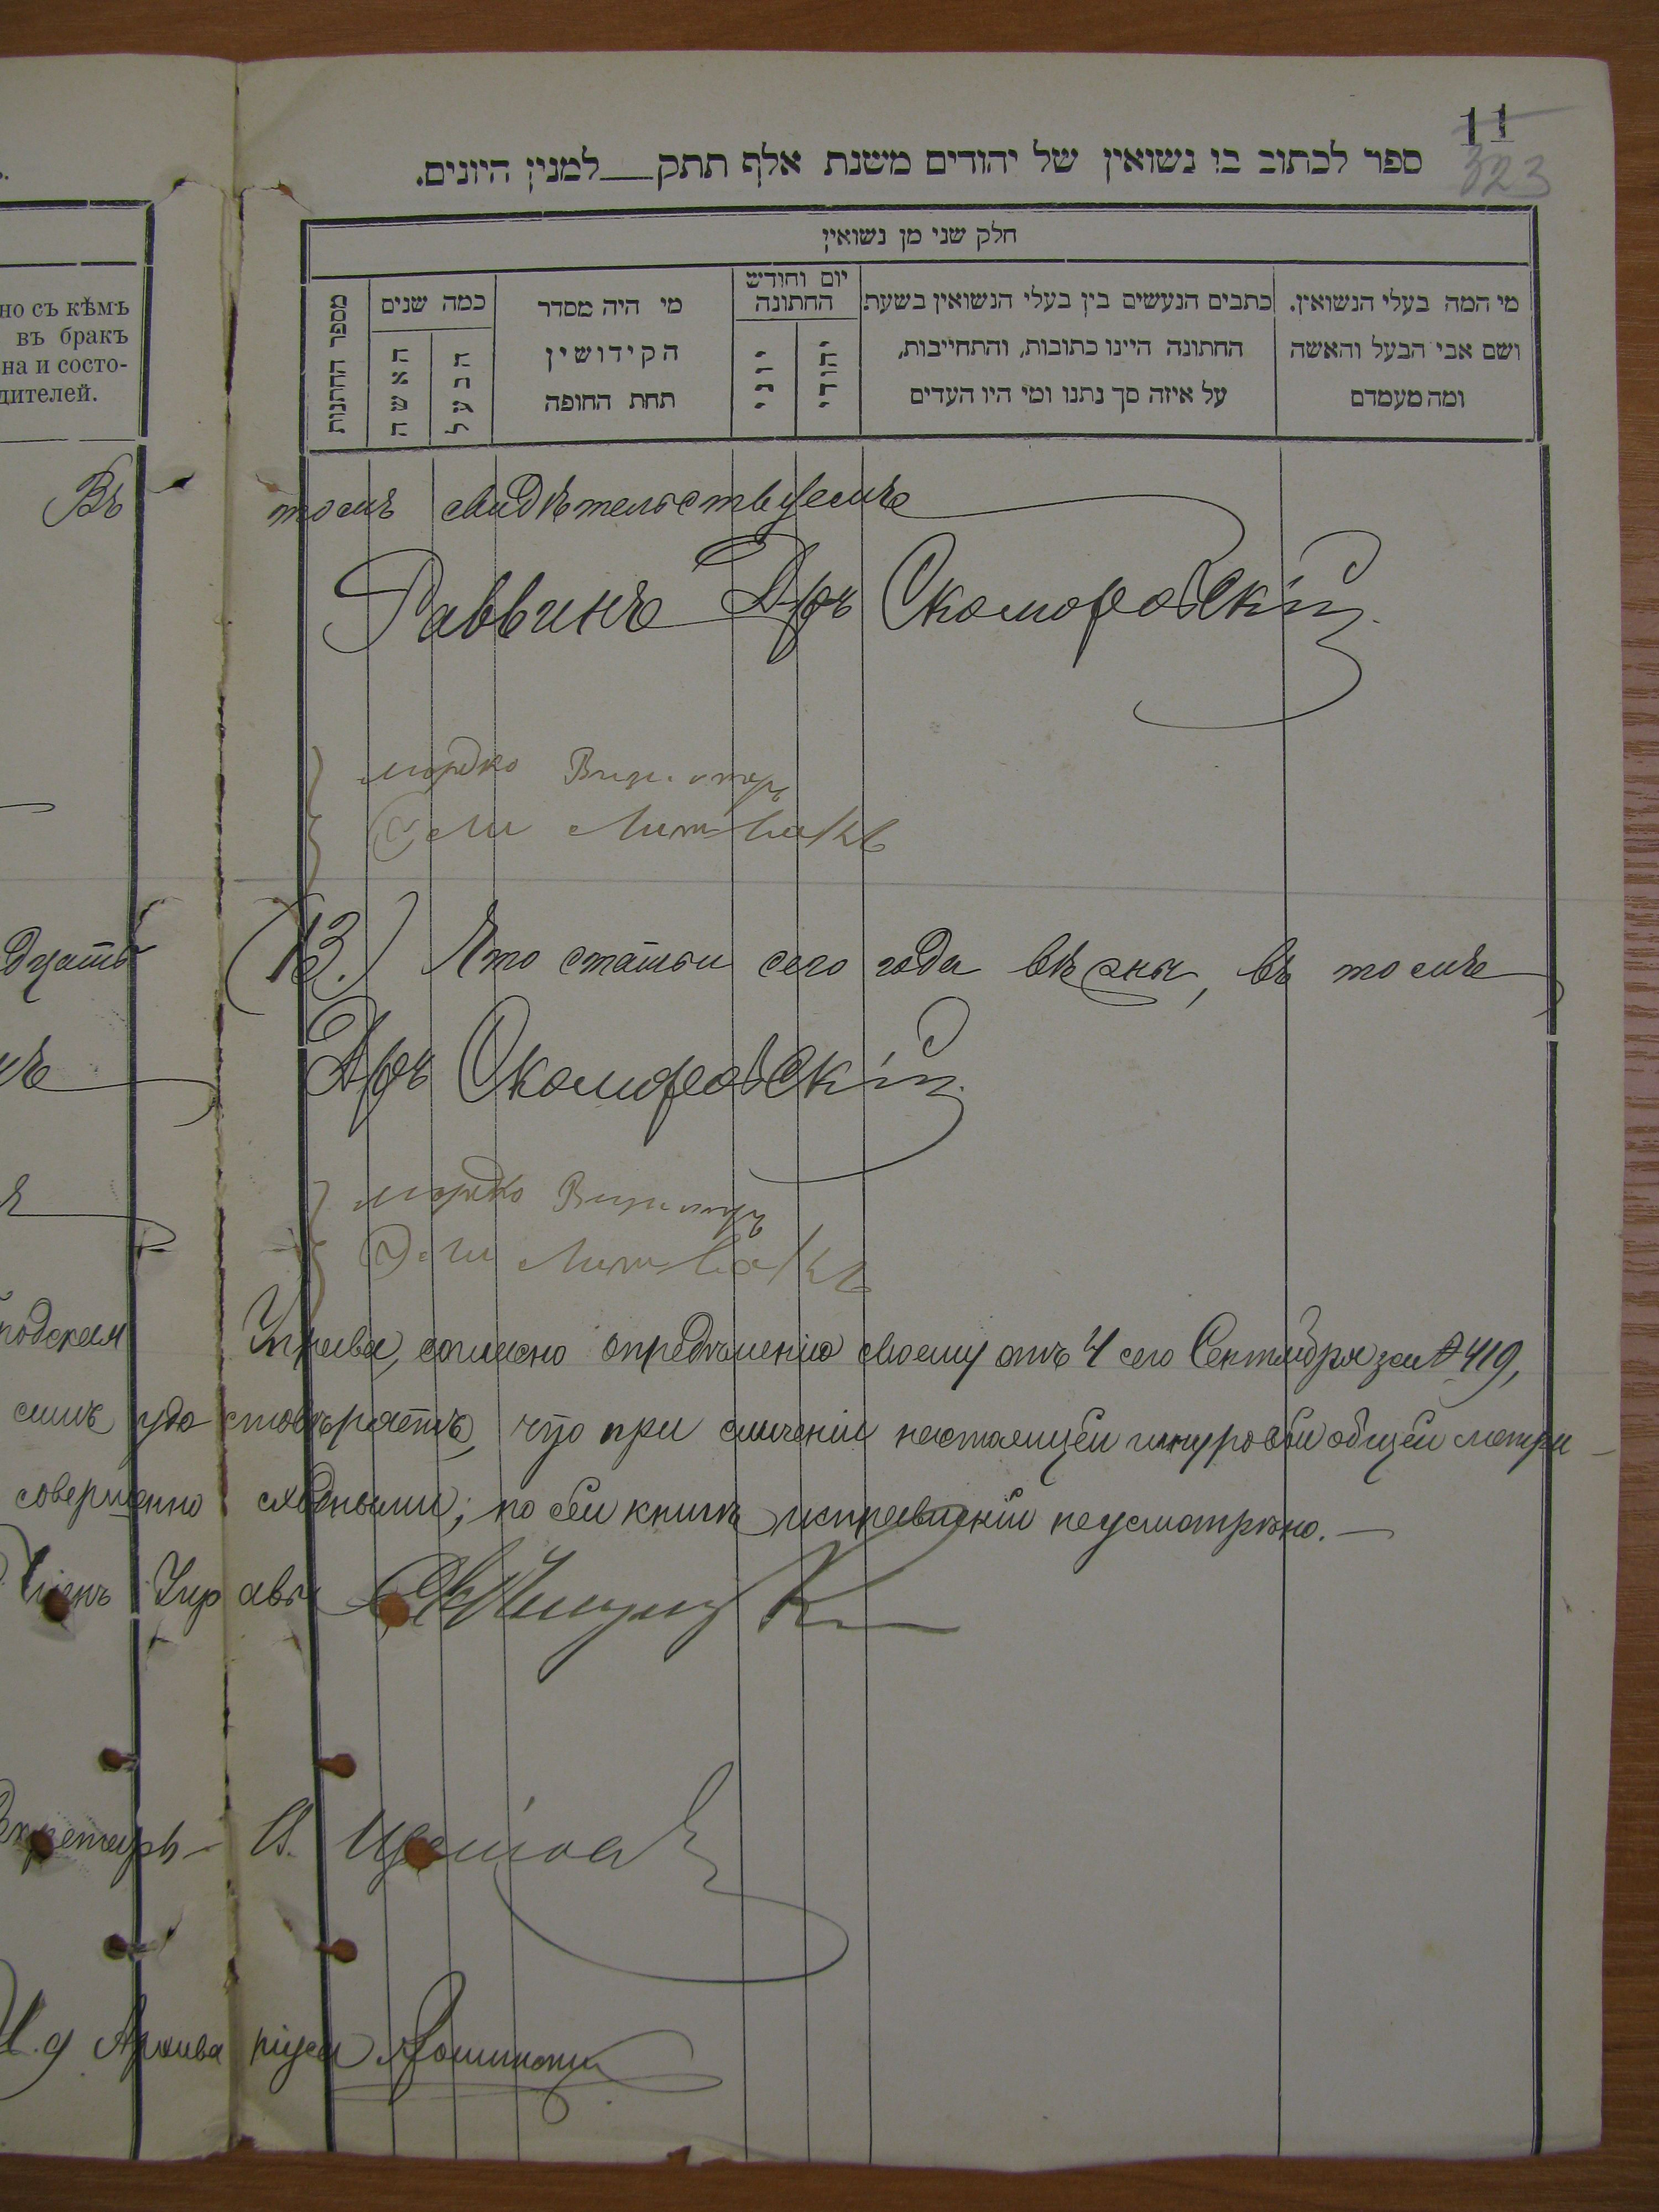 11
323
ספר לכתוב בו נשואין של יהודים משנת אלף תתק__למנין היונים.
חלק שני מן נשואין
מספר החתנות
כמה שנים
האשה
הבעל
מי היה מסדר
הקידושין
תחת החופה
יום וחודש
החתונה
יוני
יהודי
כתבים הנעשים בין בעלי הנשואין בשעת
החתונה היינו כתובות, והתחייבות,
על איזה סך נתנו ומי היו העדים
מי המה בעלי הנשואין.
ושם אבי הבעל והאשה
ומה מעמדם
но съ кѣмъ
въ бракъ
на и состо-
дителей.
Въ томъ свидѣтельствуемъ
Раввинъ Д-ръ Скоморовскій
Мордко
Эли Литвакъ
дцать (13.) Что статьи сего года вѣрны, въ томъ
Д-ръ Скоморовскій
Мордко
Эли Литвакъ
Управа, согласно опредѣленію своему отъ 4 сего Сентября за № 419,
симъ удостовѣряетъ, что при сличеніи настоящей шнуровой общей метри-
совершенно сходными; по сей книгѣ исправленій неусмотрѣно. —
Членъ Управы
Секретарь
И. д Архиваріуса